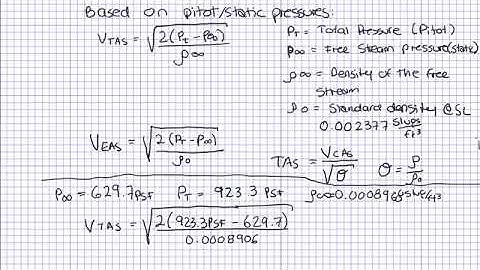 Based on pitot/static pressures:
V_TAS = √(2(P_T - P∞)/ρ∞)
P_T = Total Pressure (Pitot)
P∞ = Free Stream pressure(static)
ρ∞ = Density of the free stream
ρ0 = Standard density @SL
0.002377 slugs/ft³
V_EAS = √(2(P_T - P∞)/ρ0)
TAS = V_CAS/√σ
σ = ρ/ρ0
P∞ = 629.7 PSF P_T = 923.3 PSF
V_TAS = √(2(923.3PSF - 629.7)/0.0008906)